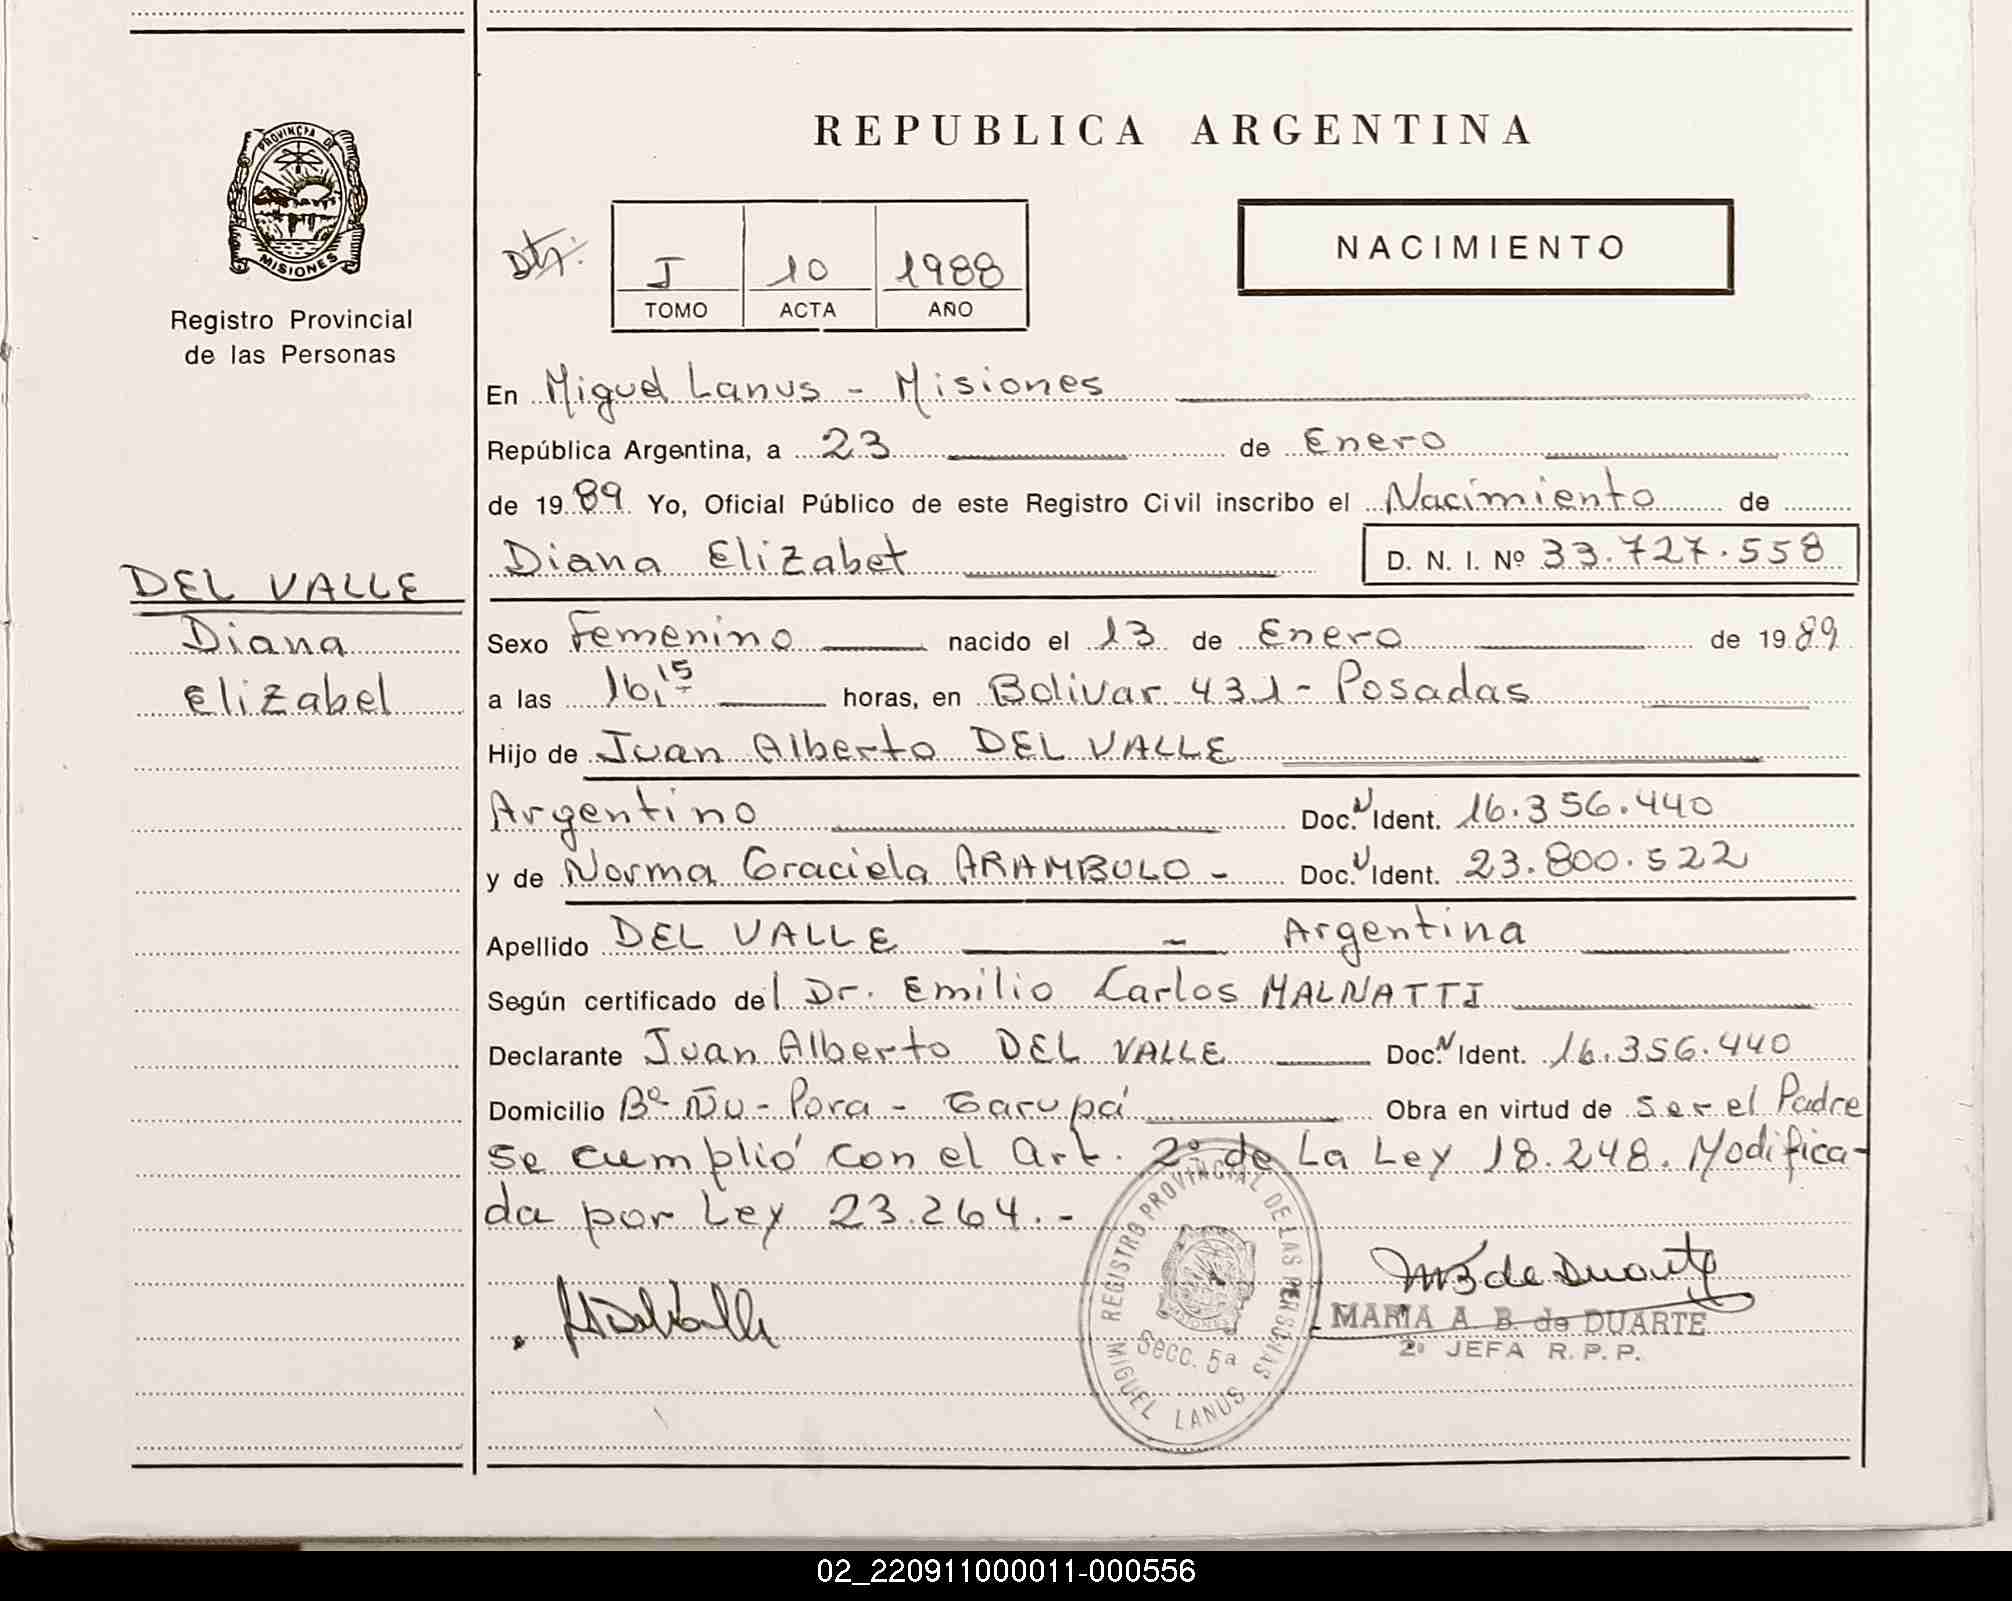 PROVINCIA DE
MISIONES
Registro Provincial
de las Personas
DEL VALLE
Diana
Elizabel
REPUBLICA ARGENTINA
I 10 1988
TOMO ACTA AÑO
NACIMIENTO
En Miguel Lanus - Misiones
República Argentina, a 23 de Enero
de 1989 Yo, Oficial Público de este Registro Civil inscribo el Nacimiento de
Diana Elizabet D. N. I. Nº 33.727.558
Sexo Femenino nacido el 13 de Enero de 1989
a las 16,15 horas, en Bolivar 431 - Posadas
Hijo de Juan Alberto DEL VALLE
Argentino Doc. N Ident. 16.356.440
y de Norma Graciela ARAMBULO - Doc. N Ident. 23.800.522
Apellido DEL VALLE - Argentina
Según certificado del Dr. Emilio Carlos MALNATTI
Declarante Juan Alberto DEL VALLE Doc. N Ident. 16.356.440
Domicilio Bº Ñu - Pora - Garupá Obra en virtud de ser el Padre
se cumplió con el Art. 2º de La Ley 18.248. Modifica-
da por Ley 23.264. -
REGISTRO PROVINCIAL DE LAS PERSONAS
MISIONES
Secc. 5ª
MIGUEL LANUS
JADelValle
MB de Duarte
MARIA A. B. de DUARTE
2º JEFA R. P. P.
02_220911000011-000556